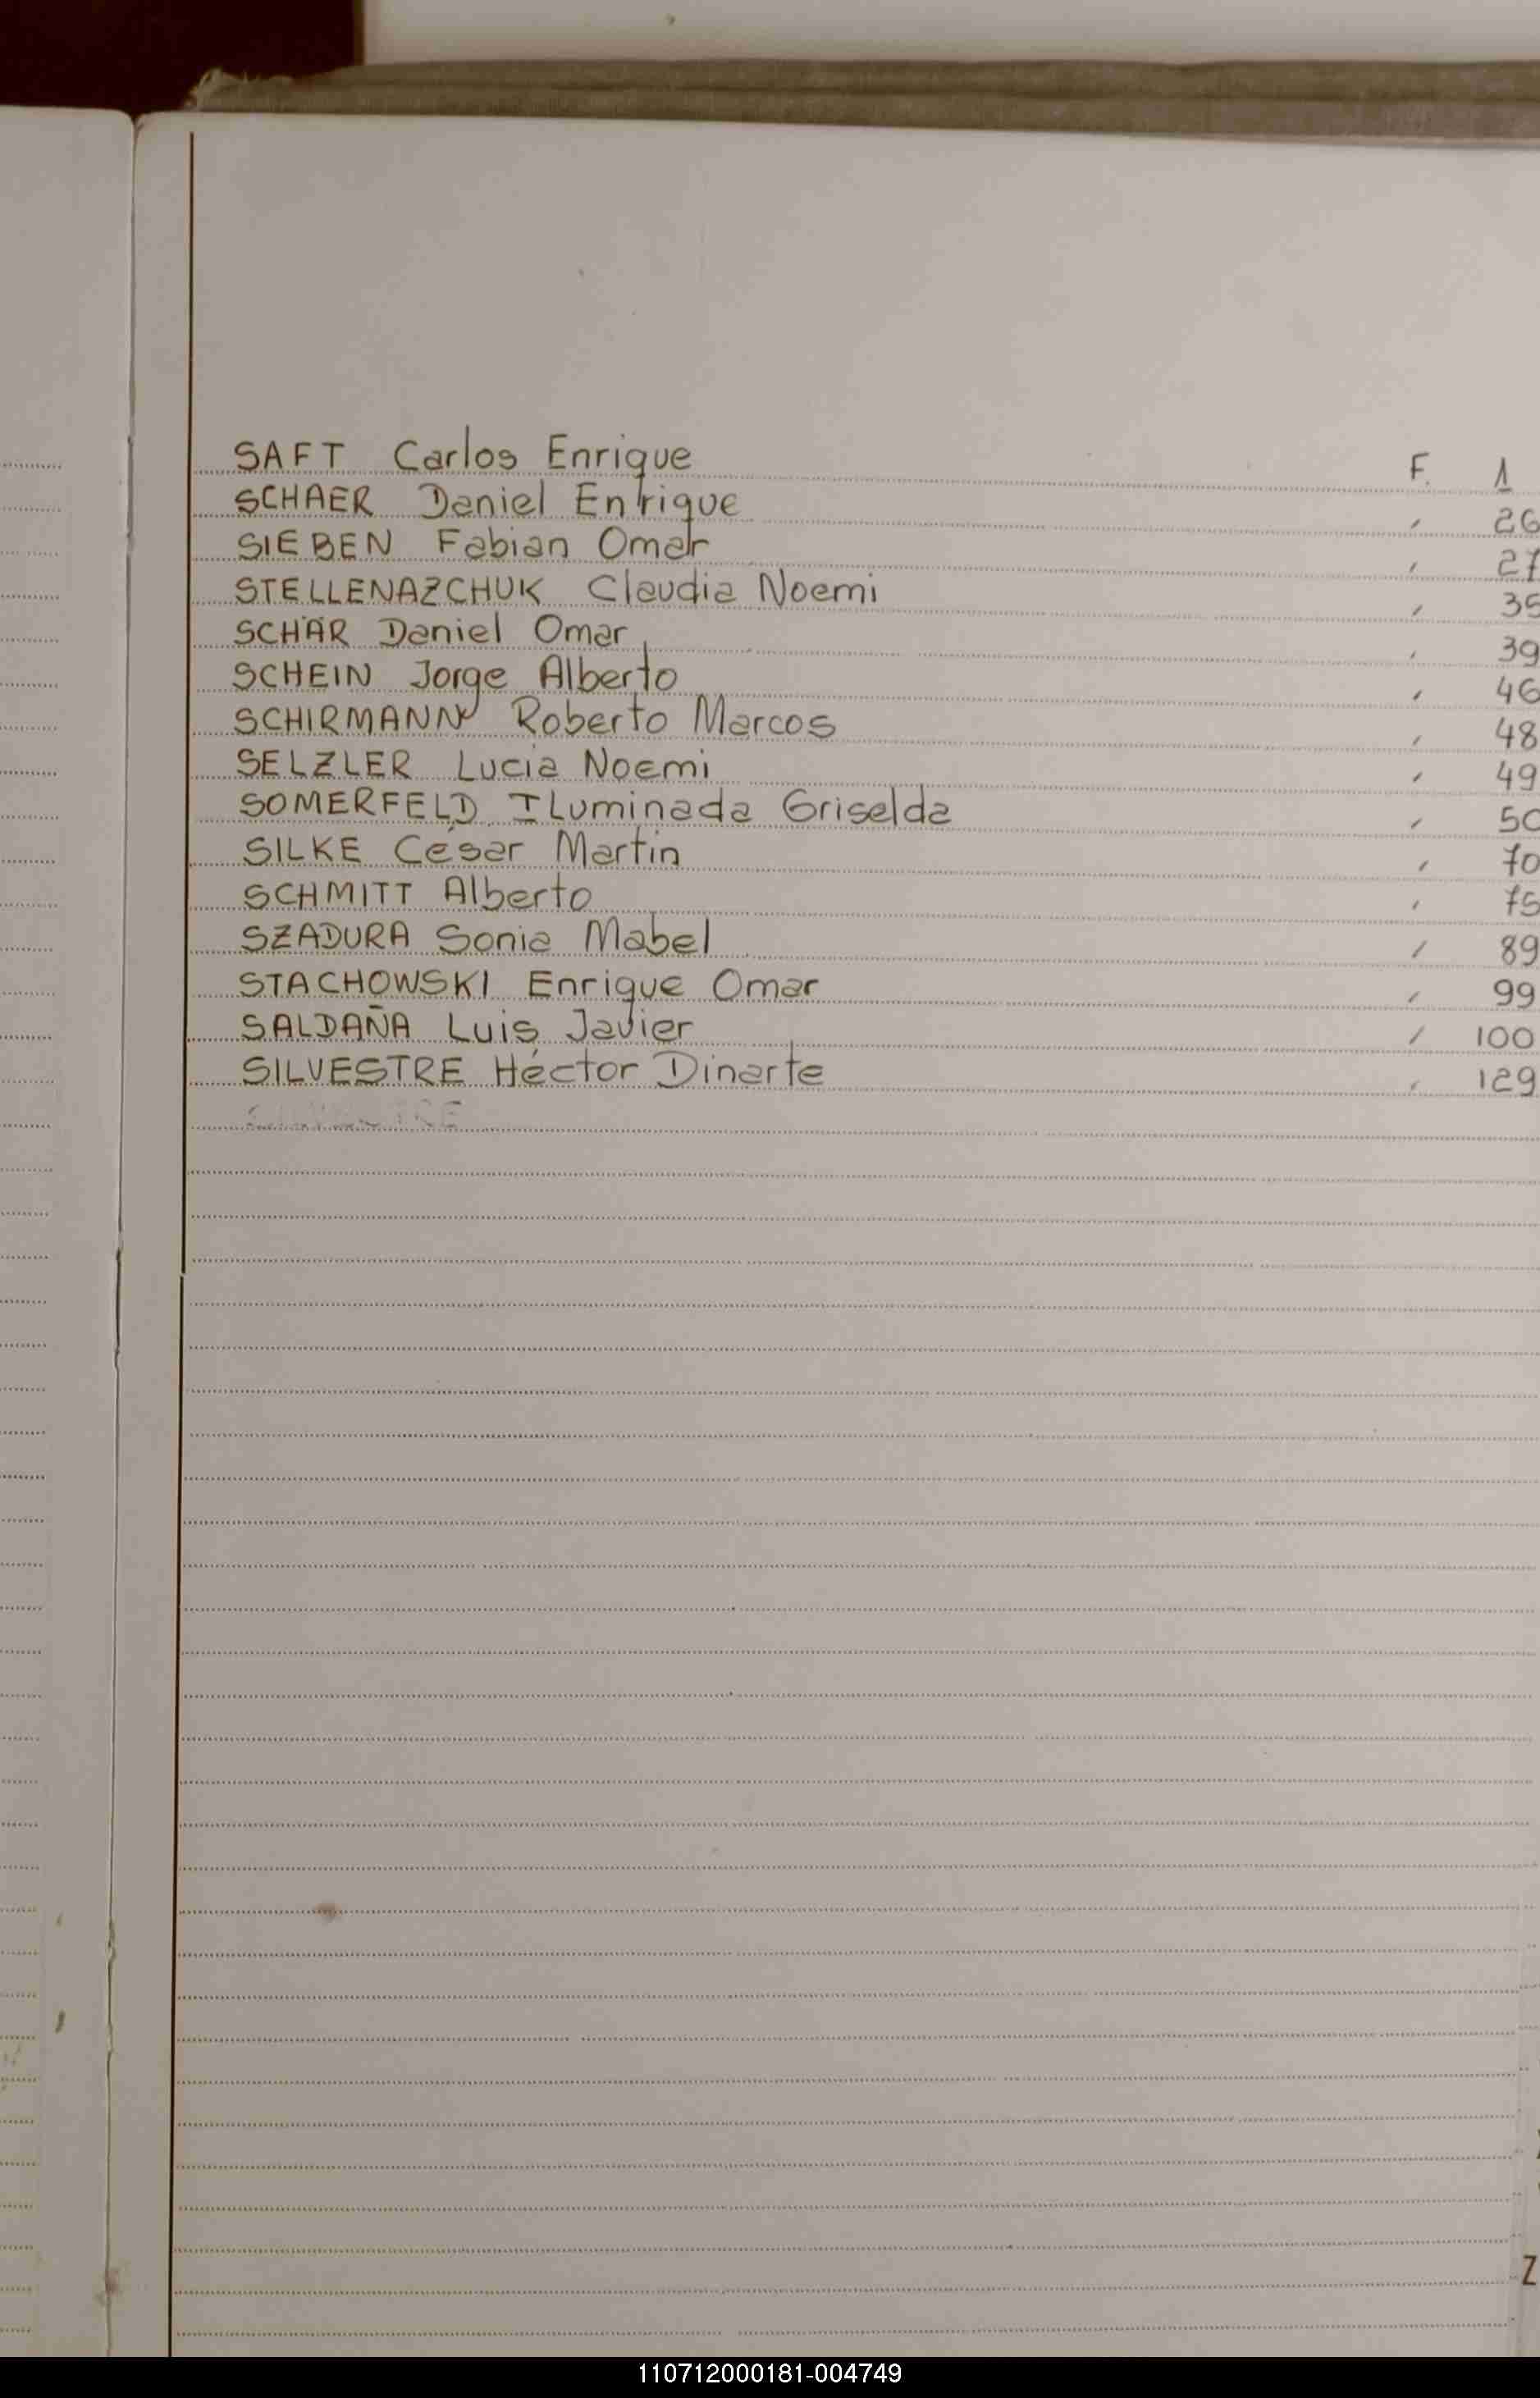 SAFT Carlos Enrique F. 1
SCHAER Daniel Enrique " 26
SIEBEN Fabian Omar " 27
STELLENAZCHUK Claudia Noemi " 35
SCHÄR Daniel Omar " 39
SCHEIN Jorge Alberto " 46
SCHIRMANN Roberto Marcos " 48
SELZLER Lucia Noemi " 49
SOMERFELD ILuminada Griselda " 50
SILKE César Martin " 70
SCHMITT Alberto " 75
SZADURA Sonia Mabel " 89
STACHOWSKI Enrique Omar " 99
SALDAÑA Luis Javier " 100
SILVESTRE Héctor Dinarte " 129
Z
110712000181-004749